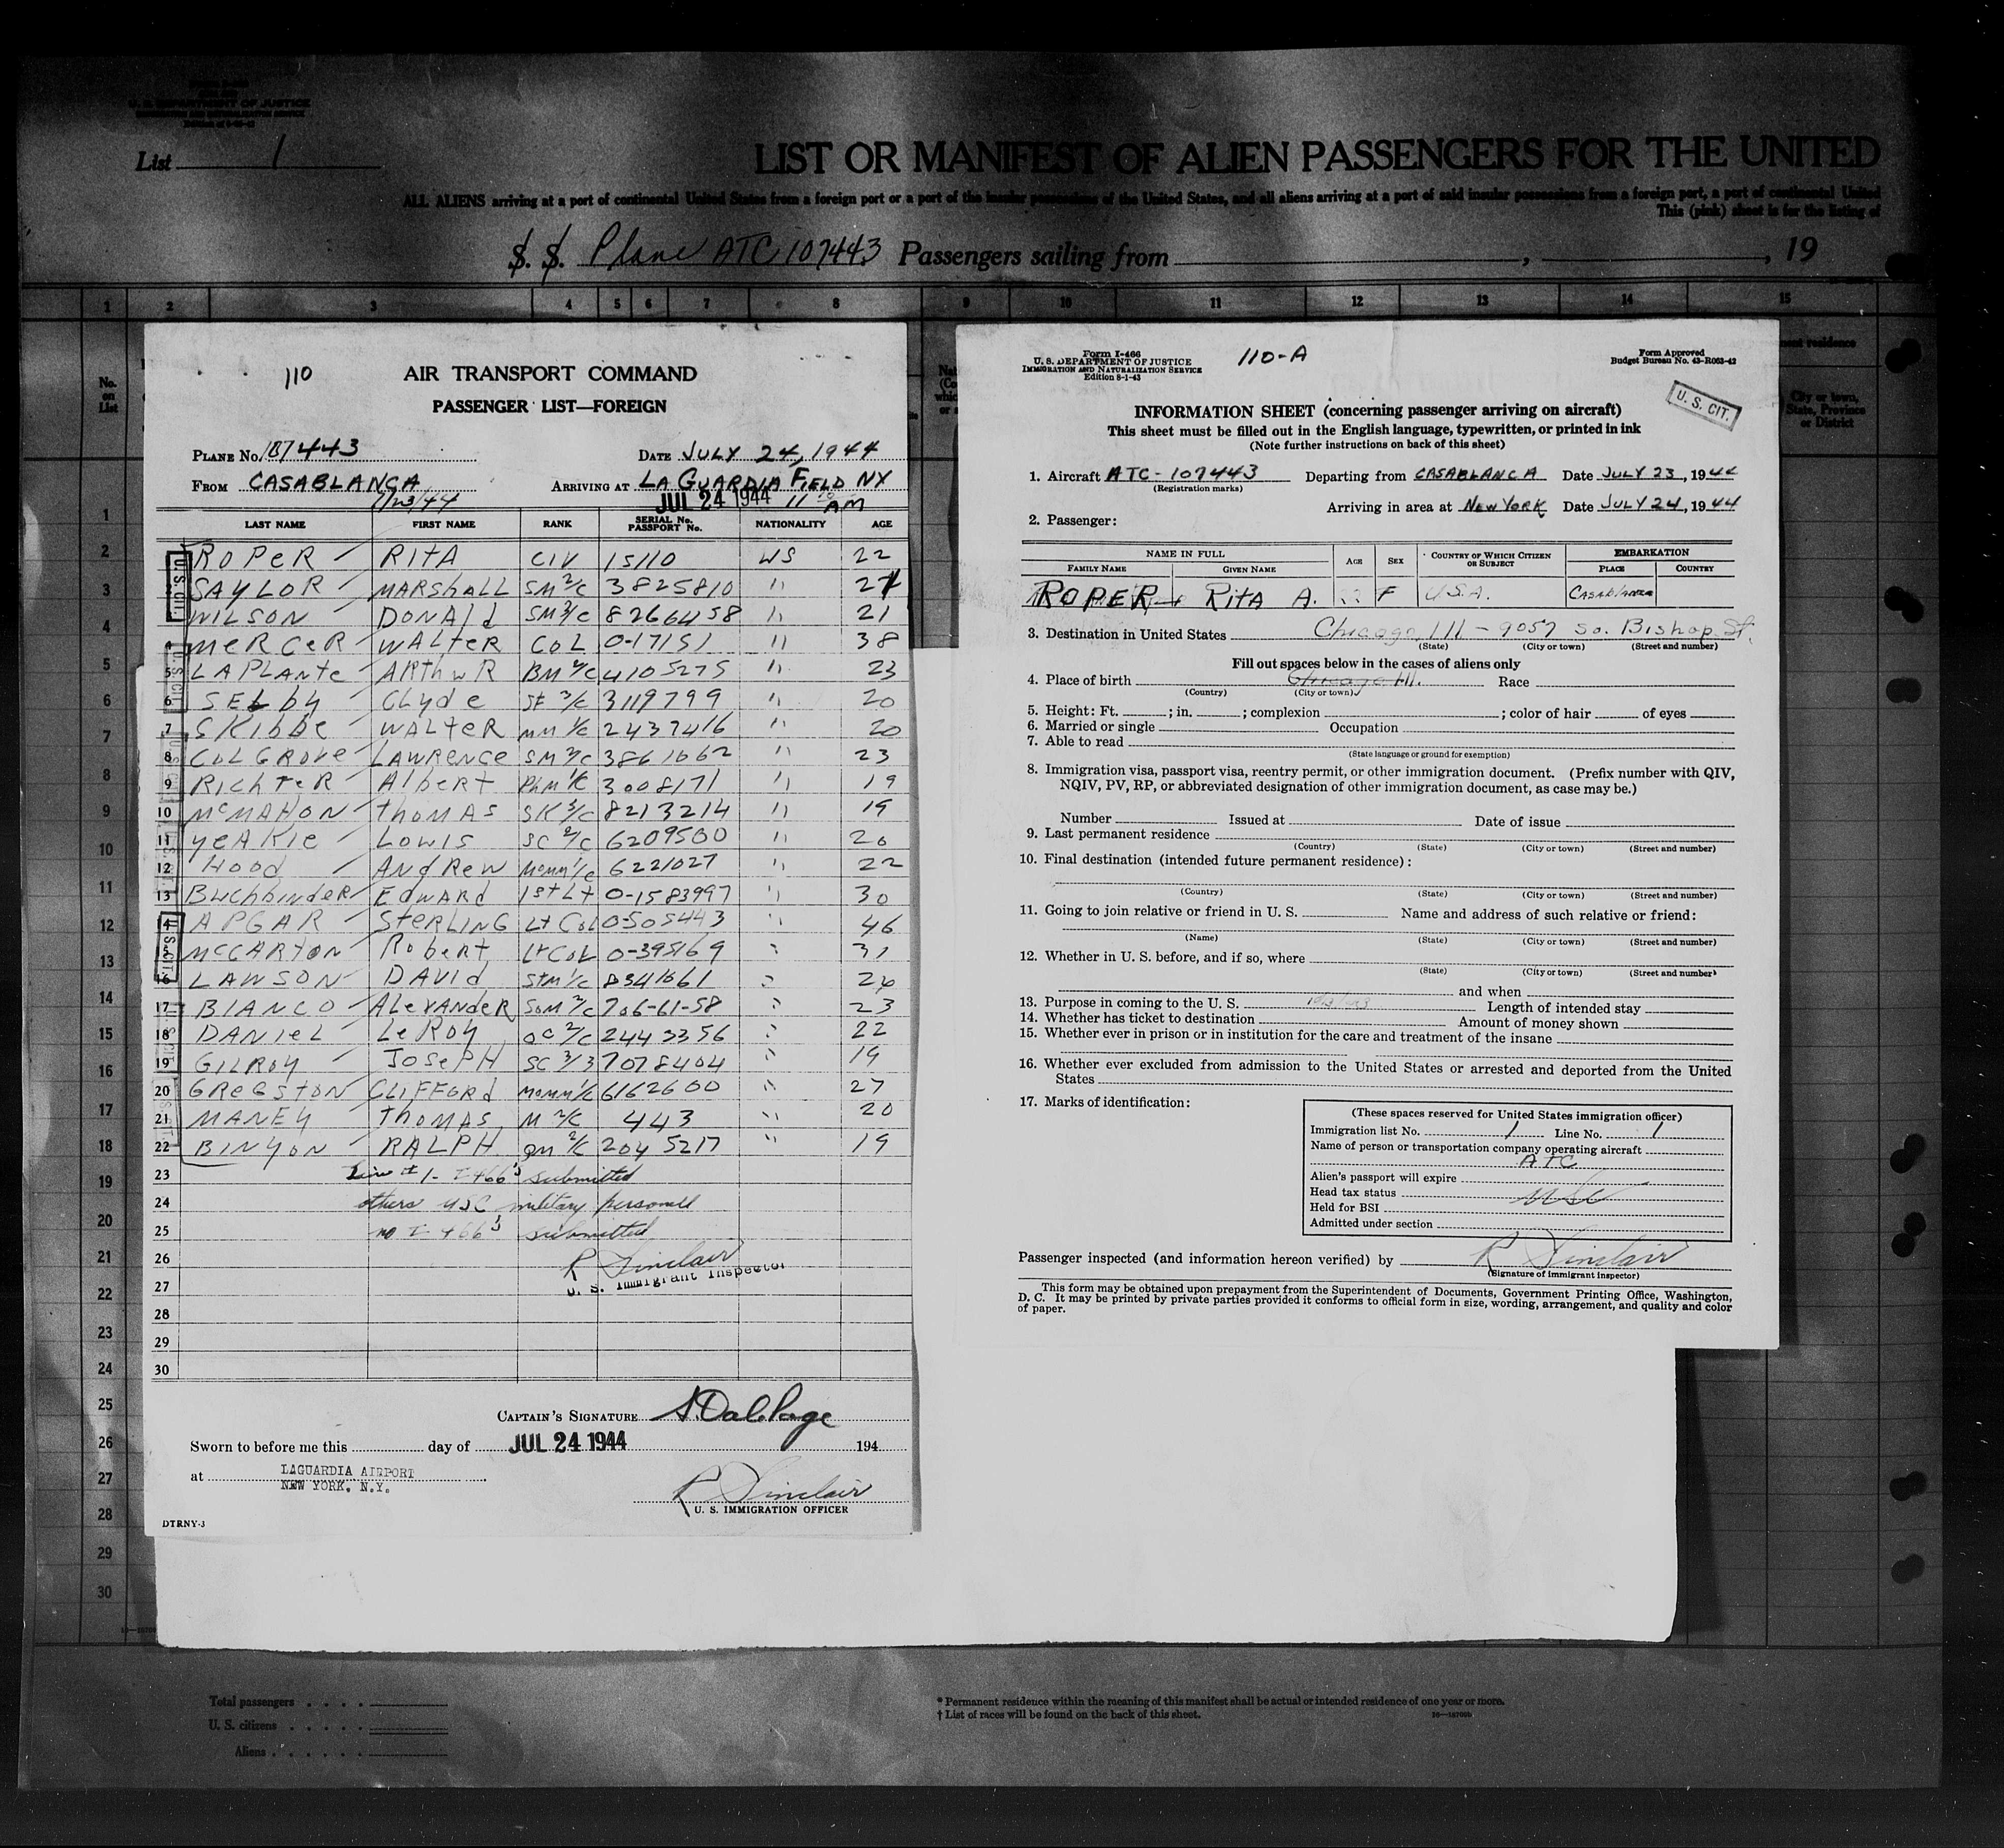 U. S. DEPARTMENT OF JUSTICE
List 1
LIST OR MANIFEST OF ALIEN PASSENGERS FOR THE UNITED
ALL ALIENS arriving at a port of continental United States from a foreign port or a port of the insular possessions of the United States, and all aliens arriving at a port of said insular possessions from a foreign port, a port of continental United
This (pink) sheet is for the listing of
S. S. Plane ATC 107443 Passengers sailing from , , 19
1 2 3 4 5 6 7 8 9 10 11 12 13 14 15
No. on List
City or town, State, Province or District
1
2
3
4
5
6
7
8
9
10
11
12
13
14
15
16
17
18
19
20
21
22
23
24
25
26
27
28
29
30
110
AIR TRANSPORT COMMAND
PASSENGER LIST—FOREIGN
PLANE No. 107443 DATE JULY 24, 1944
FROM CASABLANCA ARRIVING AT LA GUARDIA FIELD NY
7/23/44 JUL 24 1944 11 AM
LAST NAME FIRST NAME RANK SERIAL No. PASSPORT No. NATIONALITY AGE
U. S. CIT.
ROPER RITA CIV 15110 US 22
SAYLOR MARSHALL SM 2/c 3825810 " 27
WILSON DONALD SM 3/c 8266458 " 21
MERCER WALTER COL 0-17151 " 38
5 LAPLANTE ARTHUR BM 2/c 4105275 " 23
6 SELby Clyde St 3/c 3119799 " 20
7 SKIBBE WALTER MM 1/c 2437416 " 20
8 COLGROVE LAWRENCE SM 3/c 3861662 " 23
9 RICHTER Albert PhM 1/c 3008171 " 19
10 McMAHON THOMAS SK 3/c 8213214 " 19
11 YEAKIE LOUIS SC 2/c 6209500 " 20
12 HOOD ANDREW MoMM 1/c 6221027 " 22
13 Buchbinder EDWARD 1st Lt 0-1583997 " 30
14 APGAR STERLING Lt Col 0-505443 " 46
15 McCARTON Robert Lt Col 0-395169 " 31
16 LAWSON DAVID StM 1/c 8341661 " 26
17 BIANCO ALEXANDER SoM 2/c 706-61-58 " 23
18 DANIEL LeROY 2/c 2443356 " 22
19 GILROY JOSEPH SC 3/3 7078404 " 19
20 GREGSTON CLIFFORD MoMM 1/c 6162600 " 27
21 MANEY THOMAS M 2/c 443 " 20
22 BINYON RALPH QM 2/c 2045217 " 19
23 Line # 1 - I-466's submitted
24 others USC military personell
25 no I-466's submitted
26 R Sinclair
27 U. S. Immigrant Inspector
28
29
30
CAPTAIN'S SIGNATURE S. Dale Page
Sworn to before me this day of JUL 24 1944 194
at LAGUARDIA AIRPORT
NEW YORK, N.Y.
R Sinclair
U. S. IMMIGRATION OFFICER
DTRNY-3
Form I-466
U. S. DEPARTMENT OF JUSTICE
IMMIGRATION AND NATURALIZATION SERVICE
Edition 8-1-43
110-A
Form Approved
Budget Bureau No. 43-R063-42
U. S. CIT.
INFORMATION SHEET (concerning passenger arriving on aircraft)
This sheet must be filled out in the English language, typewritten, or printed in ink
(Note further instructions on back of this sheet)
1. Aircraft ATC-107443 Departing from CASABLANCA Date JULY 23, 1944
(Registration marks)
Arriving in area at NEW YORK Date JULY 24, 1944
2. Passenger:
NAME IN FULL AGE SEX COUNTRY OF WHICH CITIZEN OR SUBJECT EMBARKATION
FAMILY NAME GIVEN NAME PLACE COUNTRY
ROPER RITA A. 22 F U.S.A. CASABLANCA
3. Destination in United States Chicago, Ill - 9057 So. Bishop St.
(State) (City or town) (Street and number)
Fill out spaces below in the cases of aliens only
4. Place of birth Chicago Ill. Race
(Country) (City or town)
5. Height: Ft. ; in. ; complexion ; color of hair of eyes
6. Married or single Occupation
7. Able to read
(State language or ground for exemption)
8. Immigration visa, passport visa, reentry permit, or other immigration document. (Prefix number with QIV,
NQIV, PV, RP, or abbreviated designation of other immigration document, as case may be.)
Number Issued at Date of issue
9. Last permanent residence
(Country) (State) (City or town) (Street and number)
10. Final destination (intended future permanent residence):
(Country) (State) (City or town) (Street and number)
11. Going to join relative or friend in U. S. Name and address of such relative or friend:
(Name) (State) (City or town) (Street and number)
12. Whether in U. S. before, and if so, where
(State) (City or town) (Street and number)
and when
13. Purpose in coming to the U. S. Length of intended stay
14. Whether has ticket to destination Amount of money shown
15. Whether ever in prison or in institution for the care and treatment of the insane
16. Whether ever excluded from admission to the United States or arrested and deported from the United
States
17. Marks of identification:
(These spaces reserved for United States immigration officer)
Immigration list No. 1 Line No. 1
Name of person or transportation company operating aircraft
ATC
Alien's passport will expire
Head tax status USC
Held for BSI
Admitted under section
Passenger inspected (and information hereon verified) by R Sinclair
(Signature of immigrant inspector)
This form may be obtained upon prepayment from the Superintendent of Documents, Government Printing Office, Washington,
D. C. It may be printed by private parties provided it conforms to official form in size, wording, arrangement, and quality and color
of paper.
Total passengers
U. S. citizens
Aliens
* Permanent residence within the meaning of this manifest shall be actual or intended residence of one year or more.
† List of races will be found on the back of this sheet.